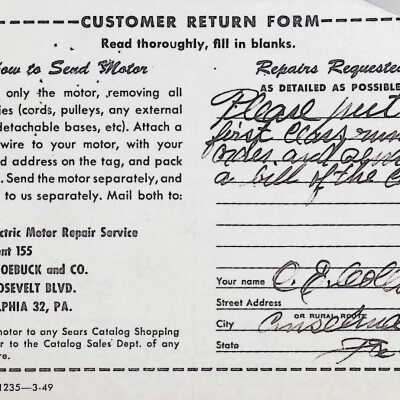 CUSTOMER RETURN FORM
Read thoroughly, fill in blanks.
ow to Send Motor
only the motor, removing all
ies (cords, pulleys, any external
detachable bases, etc). Attach a
wire to your motor, with your
d address on the tag, and pack
. Send the motor separately, and
to us separately. Mail both to:
ctric Motor Repair Service
ent 155
OEBUCK and CO.
OSEVELT BLVD.
LPHIA 32, PA.
motor to any Sears Catalog Shopping
r to the Catalog Sales Dept. of any
re.
1235—3-49
Repairs Requested
AS DETAILED AS POSSIBLE
Please put
first class
and
a bill of the
Your name O. E.
Street Address
OR RURAL ROUTE
City
State